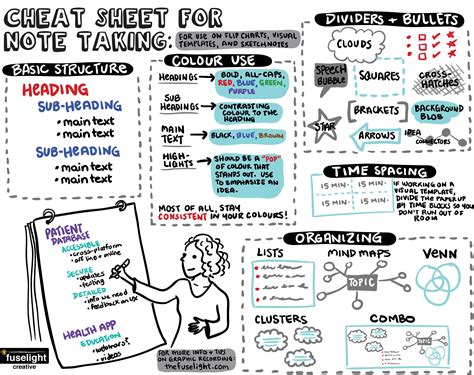 CHEAT SHEET FOR
NOTE TAKING.
FOR USE ON FLIP CHARTS, VISUAL
TEMPLATES, AND SKETCHNOTES
BASIC STRUCTURE
HEADING
SUB-HEADING
• main text
• main text
SUB-HEADING
• main text
• main text
COLOUR USE
HEADINGS
BOLD, ALL-CAPS,
RED, BLUE, GREEN,
PURPLE
SUB
HEADINGS
CONTRASTING
COLOUR TO THE
HEADING
MAIN
TEXT
BLACK, BLUE, BROWN
HIGH-
LIGHTS
SHOULD BE A "POP"
OF COLOUR THAT
STANDS OUT. USE
TO EMPHASIZE AN
IDEA.
MOST OF ALL, STAY
CONSISTENT IN YOUR COLOURS!
DIVIDERS + BULLETS
CLOUDS
SPEECH
BUBBLE
SQUARES
CROSS-
HATCHES
STAR
BRACKETS
BACKGROUND
BLOB
ARROWS
IDEA
CONNECTORS
TIME SPACING
15 MIN.
15 MIN.
15 MIN.
15 MIN.
IF WORKING ON A
VISUAL TEMPLATE,
DIVIDE THE PAPER UP
BY TIME BLOCKS SO YOU
DON'T RUN OUT OF
ROOM
PATIENT
DATABASE
ACCESSIBLE
• cross-platform
• off line + online
SECURE
• updates
• testing
DETAILED
• info we need
• feedback on UX
HEALTH APP
EDUCATION
• webinars?
• videos
ORGANIZING
LISTS
MIND MAPS
TOPIC
VENN
CLUSTERS
COMBO
TOPIC
fuselight
creative
FOR MORE INFO + TIPS
ON GRAPHIC RECORDING
thefuselight.com